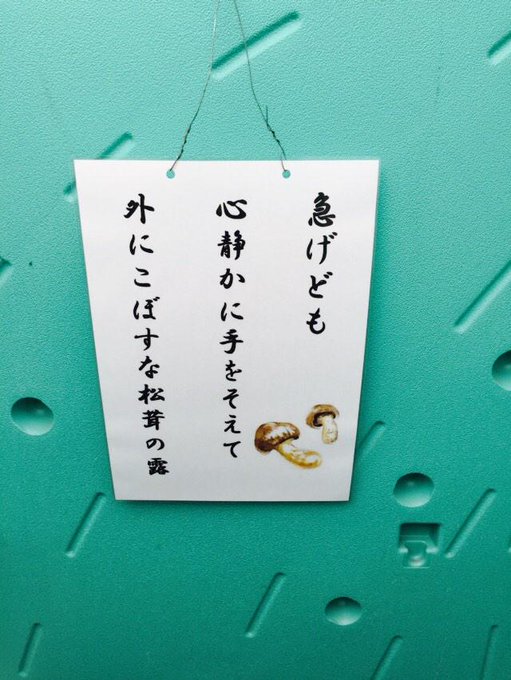 急げども
心静かに手をそえて
外にこぼすな松茸の露